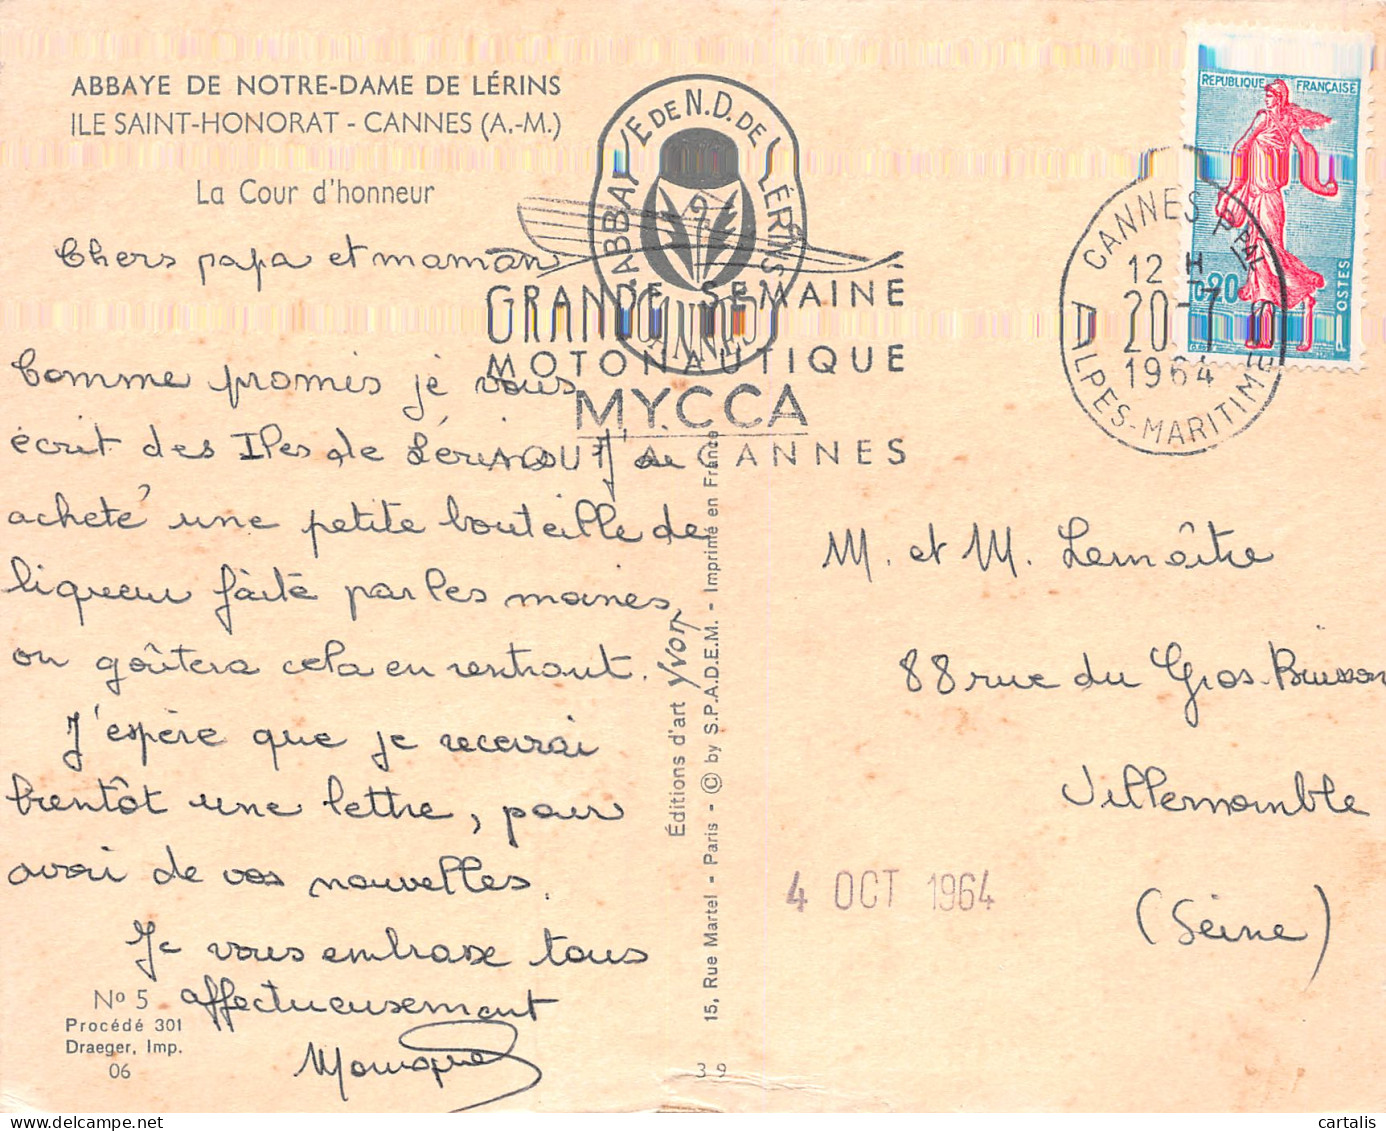 ABBAYE DE NOTRE-DAME DE LÉRINS
ILE SAINT-HONORAT - CANNES (A.-M.)
La Cour d'honneur
Chers papa et maman
Comme promis je vous
écrit des Iles de Lérins. J'ai
acheté une petite bouteille de
liqueur faite par les moines,
on goûtera cela en rentrant.
J'espère que je recevrai
bientôt une lettre, pour
avoir de vos nouvelles.
Je vous embrasse tous
affectueusement
Monique
Nº 5
Procédé 301
Draeger, Imp.
06
ABBAYE DE N.D. DE LÉRINS
CANNES
GRANDE SEMAINE
MOTONAUTIQUE
MYCCA
AOUT A CANNES
Éditions d'art Yvon
15, Rue Martel - Paris - © by S.P.A.D.E.M. - Imprimé en France
39
REPUBLIQUE FRANÇAISE
0,20
POSTES
CANNES PPAL
12 H
20-7
1964
ALPES-MARITIMES
M. et M. Lemaître
88 rue du Gros-Buisson
Villemomble
(Seine)
4 OCT 1964
cartalis